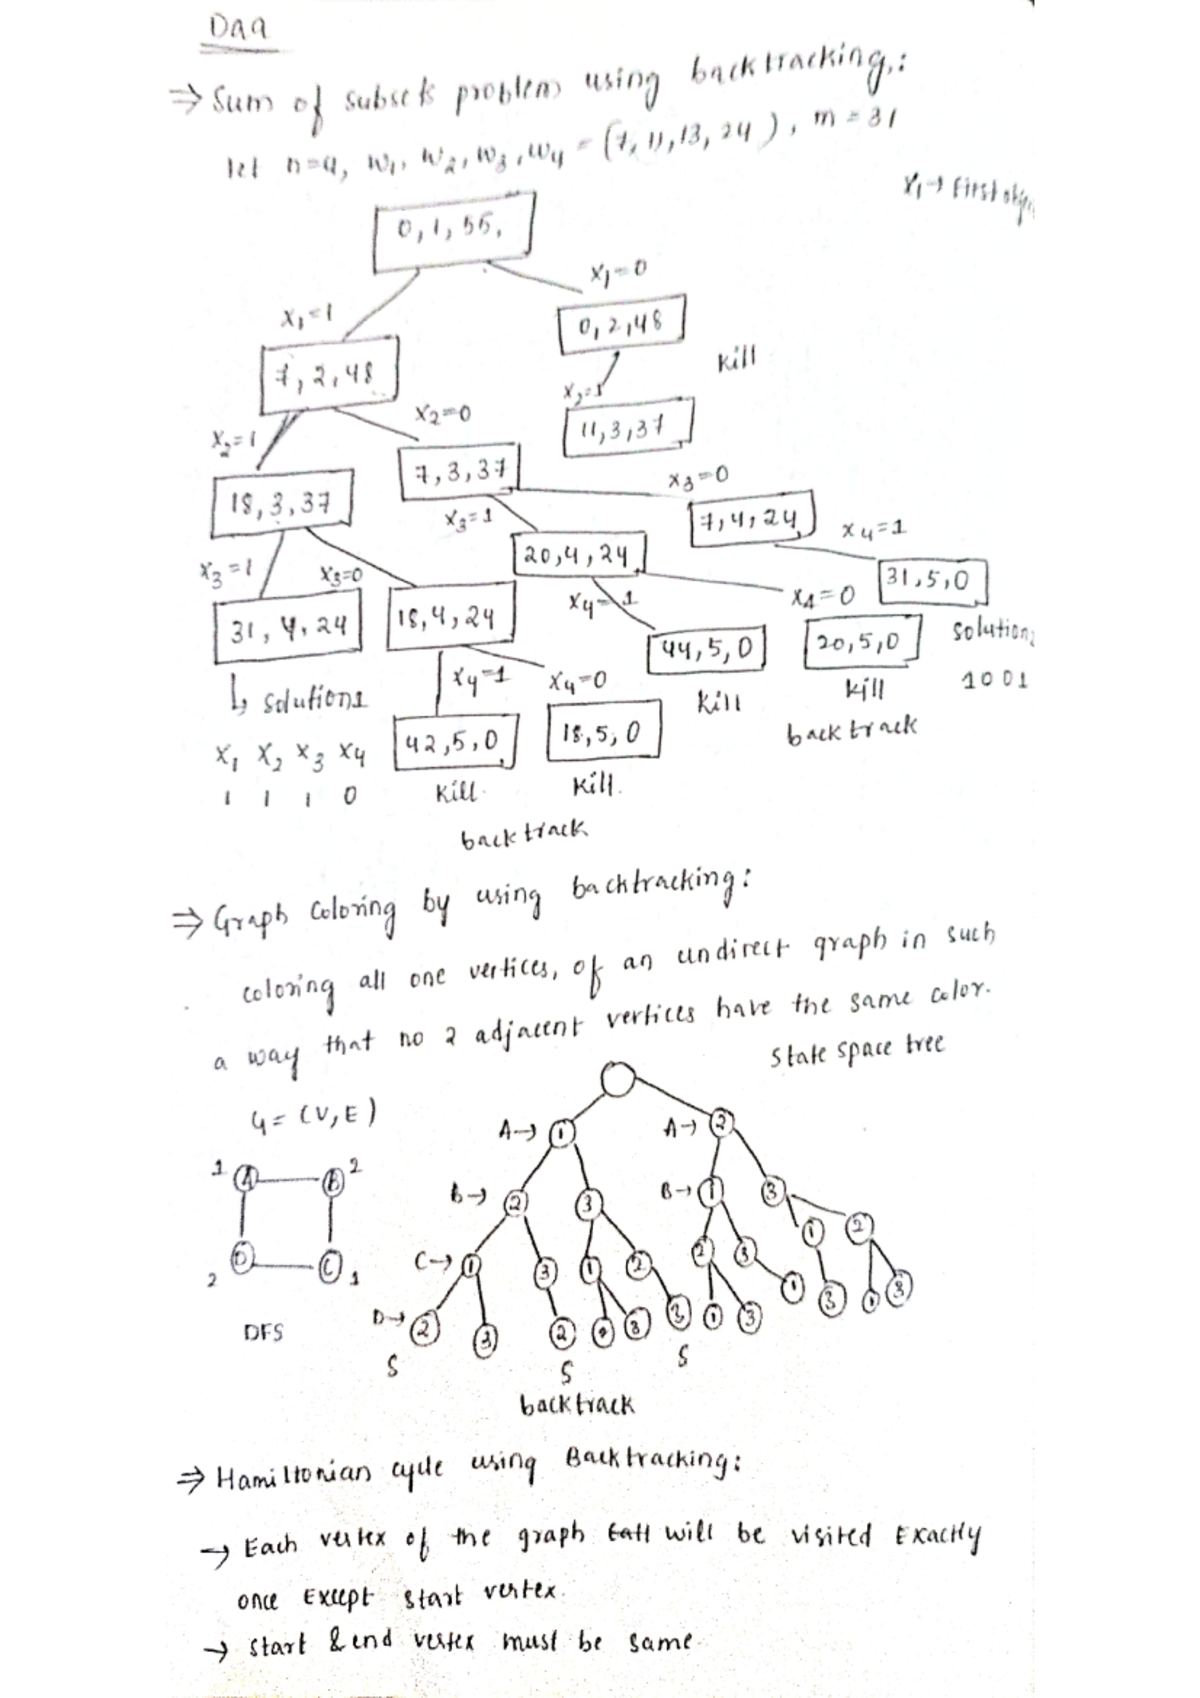 Daa
⇒ Sum of subsets problem using backtracking:
let n=4, W1, W2, W3, W4 = (7, 11, 13, 24), m = 31
X1 → First
0, 1, 55,
X1=1
X1=0
0, 2, 48
Kill
7, 2, 48
X2=1
11, 3, 37
X2=1
X2=0
7, 3, 37
X3=0
18, 3, 37
X3=1
7, 4, 24
X4=1
20, 4, 24
31, 5, 0
X3=1
X3=0
X4=1
X4=0
31, 4, 24
18, 4, 24
44, 5, 0
20, 5, 0
Solution
↳ Solution1
X4=1
X4=0
Kill
Kill
1001
backtrack
X1 X2 X3 X4
42, 5, 0
18, 5, 0
1 1 1 0
Kill
Kill.
backtrack
⇒ Graph Coloring by using backtracking:
coloring all one vertices, of an undirect graph in such
a way that no 2 adjacent vertices have the same color.
State space tree
G = (V, E)
A→ 1
A→ 2
1 A B 2
B→ 2 3
B→ 1 3
2 D C 1
C→ 1 3 1 2
2 3 1 2
D→ 2 3 2
3 3
1 3 1 3 1 3
DFS
S S S
backtrack
⇒ Hamiltonian cycle using Backtracking:
→ Each vertex of the graph will be visited Exactly
once Except start vertex.
→ Start & end vertex must be same.